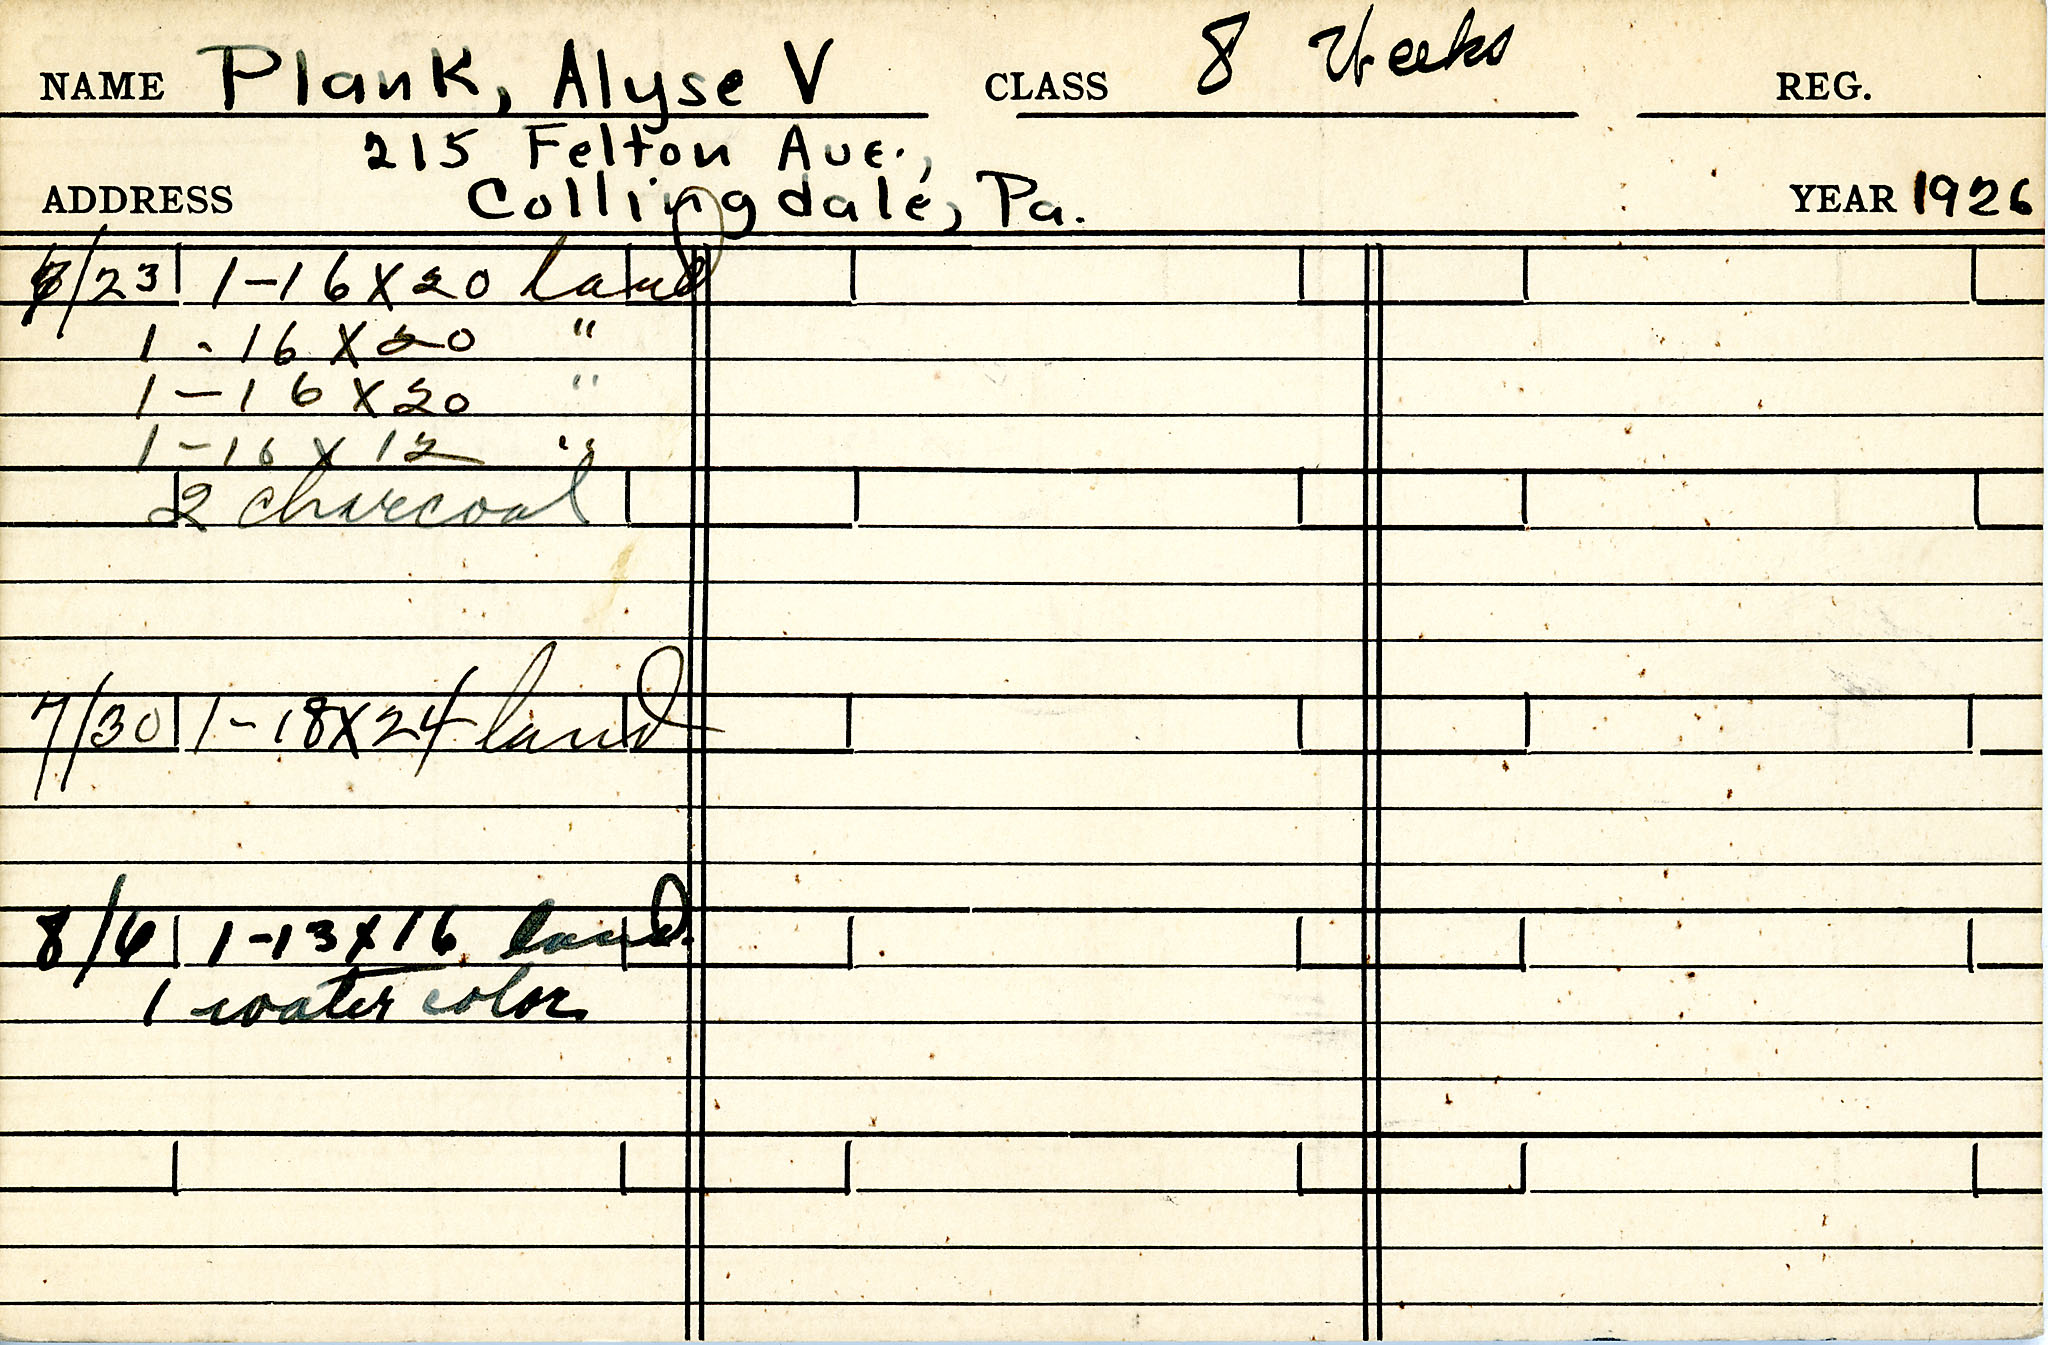 NAME Plank, Alyse V CLASS 8 Weeks REG.
215 Felton Ave.,
ADDRESS Collingdale, Pa. YEAR 1926
/23 1-16X20 land
1-16X20 "
1-16X20 "
1-16X12 "
2 charcoal
7/30 1-18X24 land
8/6 1-13X16 land.
1 water color